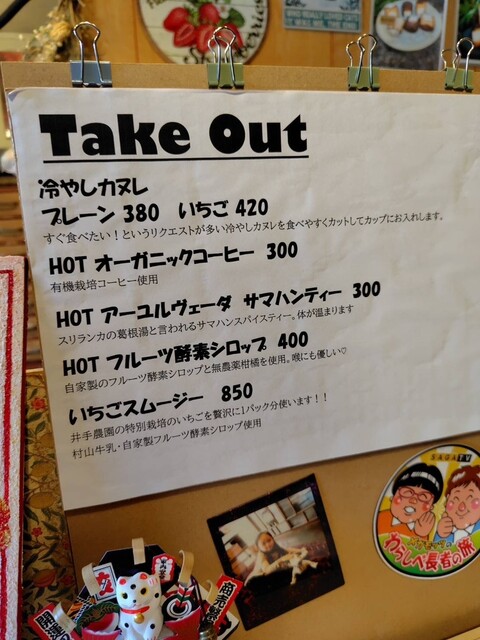 Take Out
冷やしカヌレ
プレーン 380　いちご 420
すぐ食べたい！というリクエストが多い冷やしカヌレを食べやすくカットしてカップにお入れします。
HOT オーガニックコーヒー 300
有機栽培コーヒー使用
HOT アーユルヴェーダ サマハンティー 300
スリランカの葛根湯と言われるサマハンスパイスティー。体が温まります
HOT フルーツ酵素シロップ 400
自家製のフルーツ酵素シロップと無農薬柑橘を使用。喉にも優しい♡
いちごスムージー 850
井手農園の特別栽培のいちごを贅沢に1パック分使います！！
村山牛乳・自家製フルーツ酵素シロップ使用
SAGATV
わらしべ長者の旅